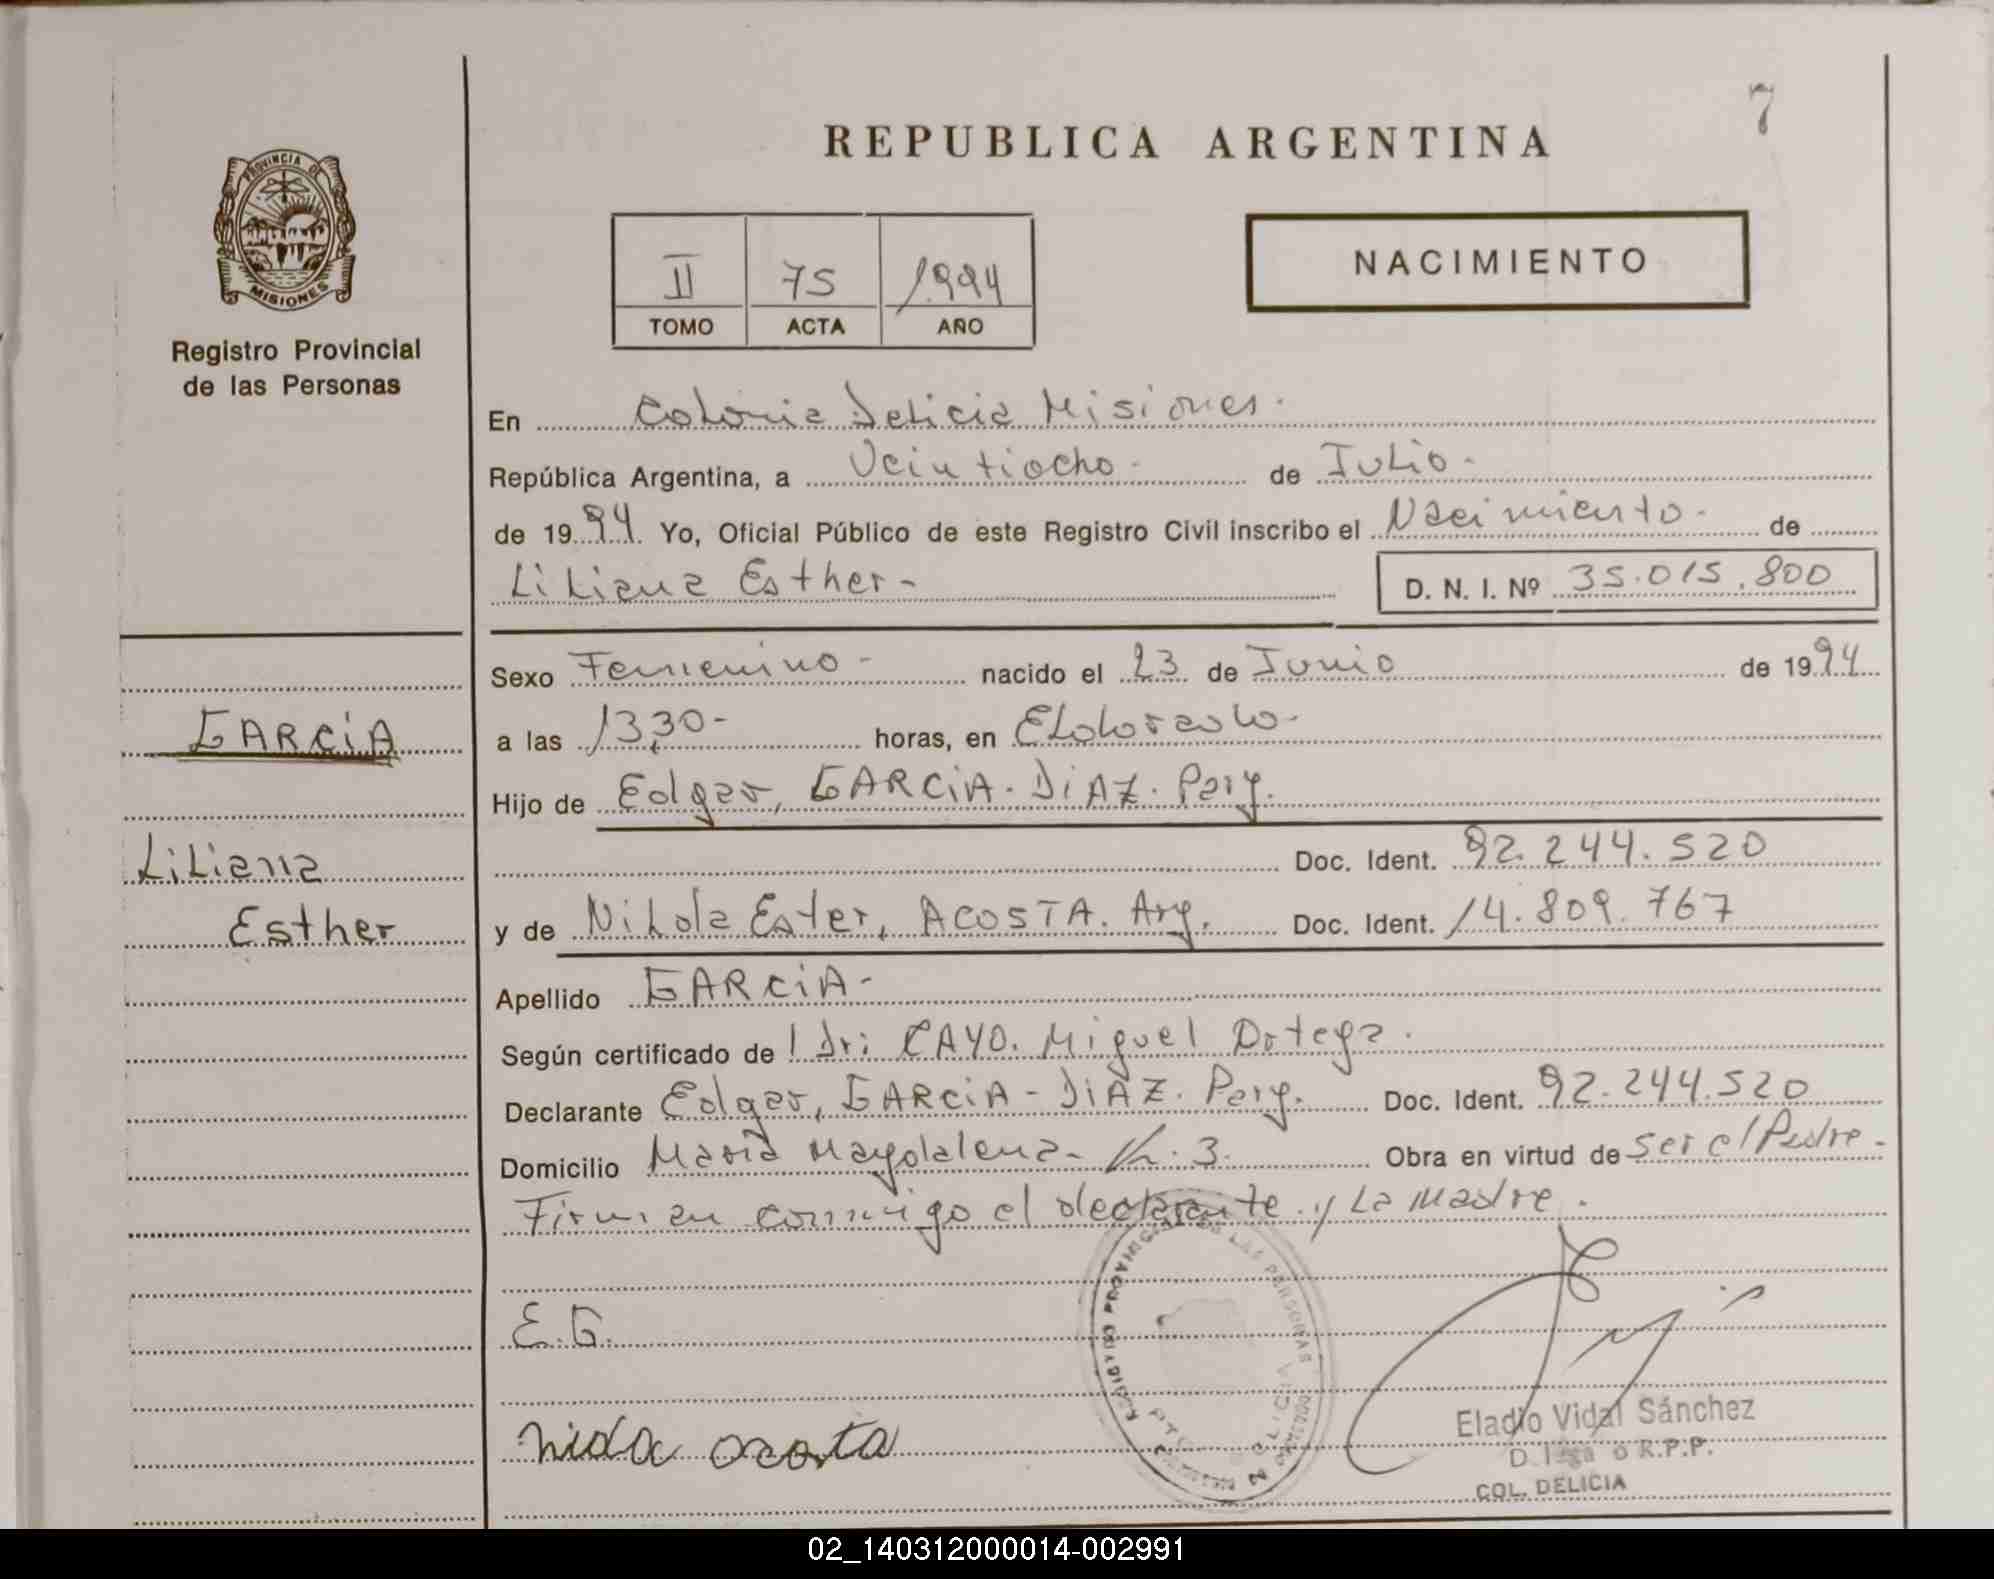 7
REPUBLICA ARGENTINA
PROVINCIA DE
MISIONES
Registro Provincial
de las Personas
II 75 1994
TOMO ACTA AÑO
NACIMIENTO
En Colonia Delicia Misiones.
República Argentina, a Veintiocho - de Julio -
de 1994 Yo, Oficial Público de este Registro Civil inscribo el Nacimiento - de
Liliana Esther - D. N. I. Nº 35.015.800
GARCIA
Liliana
Esther
Sexo Femenino - nacido el 23 de Junio de 1994
a las 13,30 - horas, en Eldorado -
Hijo de Edgar, GARCIA - DIAZ.
Doc. Ident. 92.244.520
y de Nilda Ester, ACOSTA. Arg. Doc. Ident. 14.809.767
Apellido GARCIA -
Según certificado de CAYO. Miguel Ortega.
Declarante Edgar, GARCIA - DIAZ. Doc. Ident. 92.244.520
Domicilio Maria Magdalena - K. 3. Obra en virtud de ser el Padre -
Firman conmigo el declarante y La Madre.
E.G.
nida acosta
REGISTRO PROVINCIAL DE LAS PERSONAS
Eladio Vidal Sánchez
R.P.P.
COL. DELICIA
02_140312000014-002991